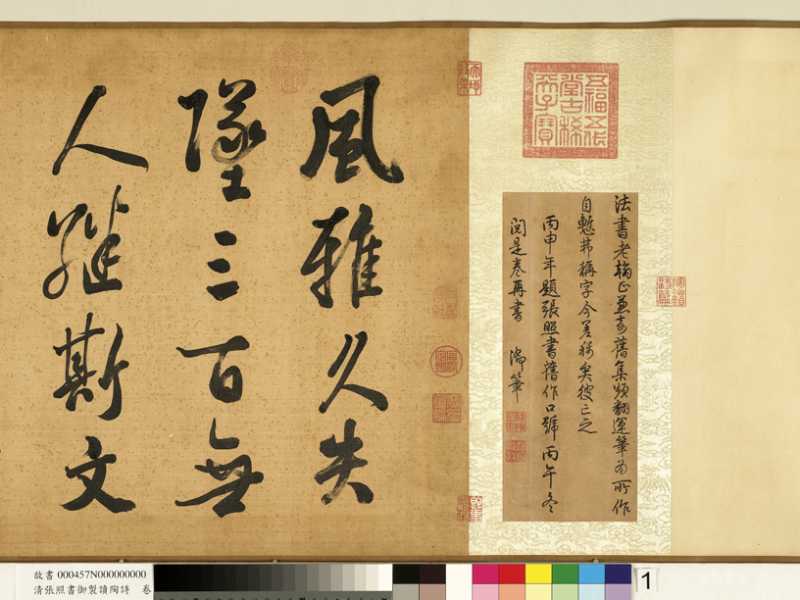 五福五代
堂古稀
天子寶
法書老格正兼奇舊集頻翻運筆為所作
自慙弗稱字今差稱矣彼亡之
丙申年題張照書舊作口號丙午冬
閱是卷再書 御筆
風雅久失
墜三百無
人繼斯文
故書 000457N000000000
清張照書御製讀陶詩 卷
1